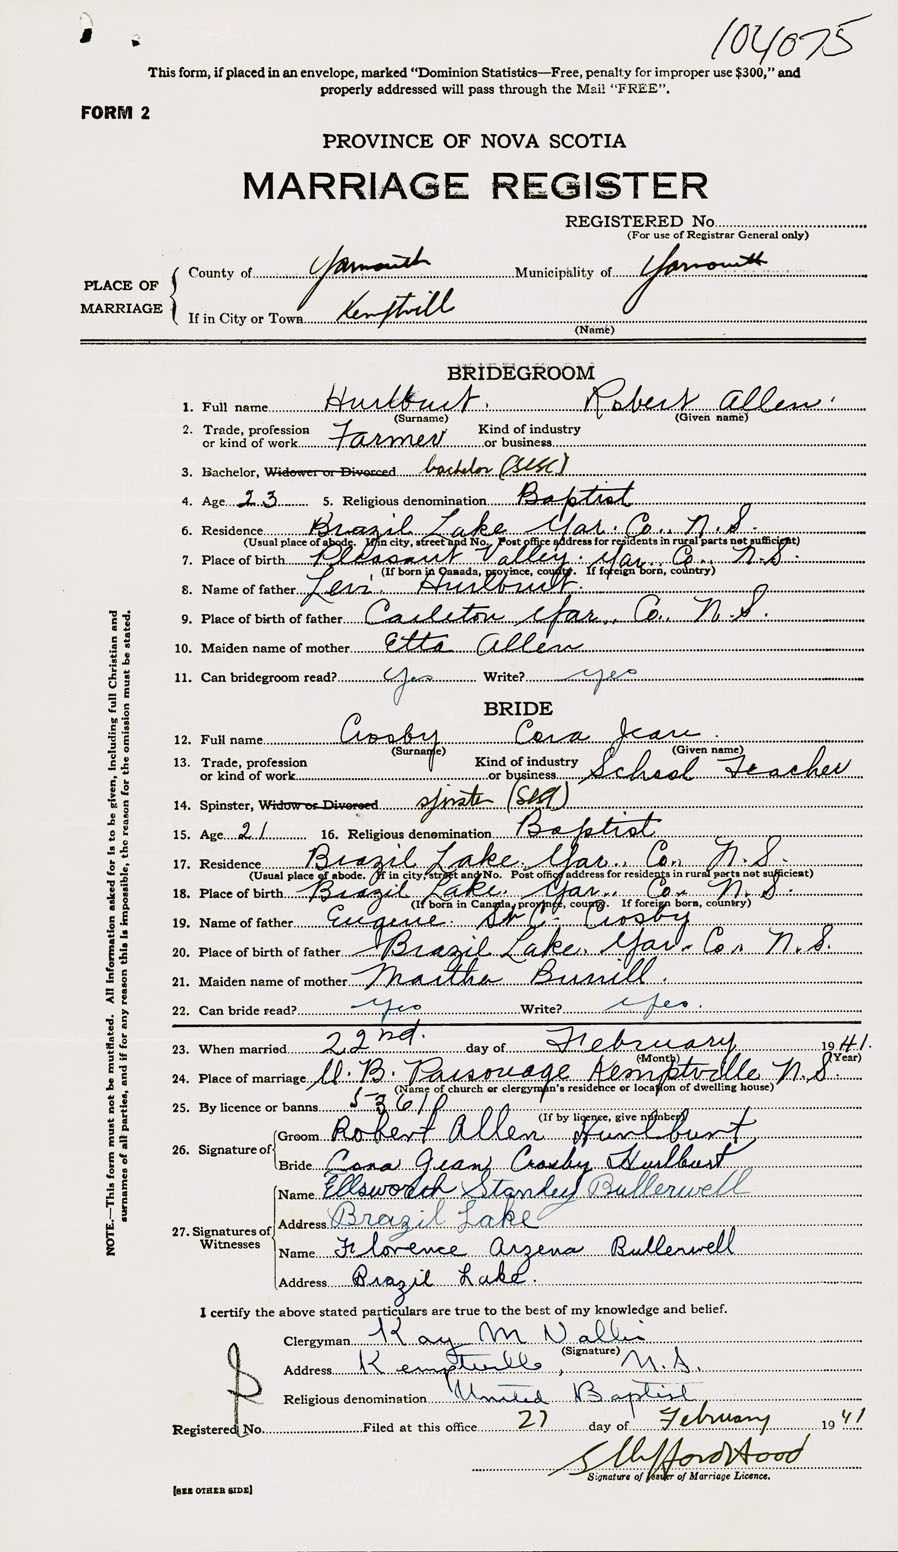 104075
This form, if placed in an envelope, marked "Dominion Statistics—Free, penalty for improper use $300," and
properly addressed will pass through the Mail "FREE".
FORM 2
PROVINCE OF NOVA SCOTIA
MARRIAGE REGISTER
REGISTERED No.
(For use of Registrar General only)
PLACE OF MARRIAGE
County of Yarmouth Municipality of Yarmouth
If in City or Town Kemptvill
(Name)
BRIDEGROOM
1. Full name Hurlburt. Robert Allen.
(Surname) (Given name)
2. Trade, profession or kind of work Farmer Kind of industry or business
3. Bachelor, Widower or Divorced bachelor
4. Age 23 5. Religious denomination Baptist
6. Residence Brazil Lake Yar. Co., N.S.
(Usual place of abode. If in city, street and No. Post office address for residents in rural parts not sufficient)
7. Place of birth Pleasant Valley. Yar. Co., N.S.
(If born in Canada, province, county. If foreign born, country)
8. Name of father Levi Hurlburt.
9. Place of birth of father Carleton Yar. Co., N.S.
10. Maiden name of mother Etta Allen
11. Can bridegroom read? Yes Write? yes
BRIDE
12. Full name Crosby Cora Jean.
(Surname) (Given name)
13. Trade, profession or kind of work Kind of industry or business School Teacher
14. Spinster, Widow or Divorced spinster
15. Age 21 16. Religious denomination Baptist
17. Residence Brazil Lake. Yar. Co. N.S.
(Usual place of abode. If in city, street and No. Post office address for residents in rural parts not sufficient)
18. Place of birth Brazil Lake. Yar. Co. N.S.
(If born in Canada, province, county. If foreign born, country)
19. Name of father Eugene Crosby
20. Place of birth of father Brazil Lake. Yar. Co. N.S.
21. Maiden name of mother Martha Burrill.
22. Can bride read? yes Write? yes.
23. When married 22nd. day of February 1941.
(Month) (Year)
24. Place of marriage U.B. Parsonage Kemptville N.S.
(Name of church or clergyman's residence or location of dwelling house)
25. By licence or banns
(If by licence, give number)
26. Signature of Groom Robert Allen Hurlburt
Bride Cora Jean Crosby Hurlburt
27. Signatures of Witnesses
Name Ellsworth Stanley Bullerwell
Address Brazil Lake
Name Florence Arzena Bullerwell
Address Brazil Lake.
I certify the above stated particulars are true to the best of my knowledge and belief.
Clergyman Kay M
(Signature)
Address Kemptville, N.S.
Religious denomination United Baptist
Registered No. Filed at this office 27 day of February 1941
Hood
Signature of Issuer of Marriage Licence.
[SEE OTHER SIDE]
NOTE.—This form must not be mutilated. All information asked for is to be given, including full Christian and
surnames of all parties, and if for any reason this is impossible, the reason for the omission must be stated.